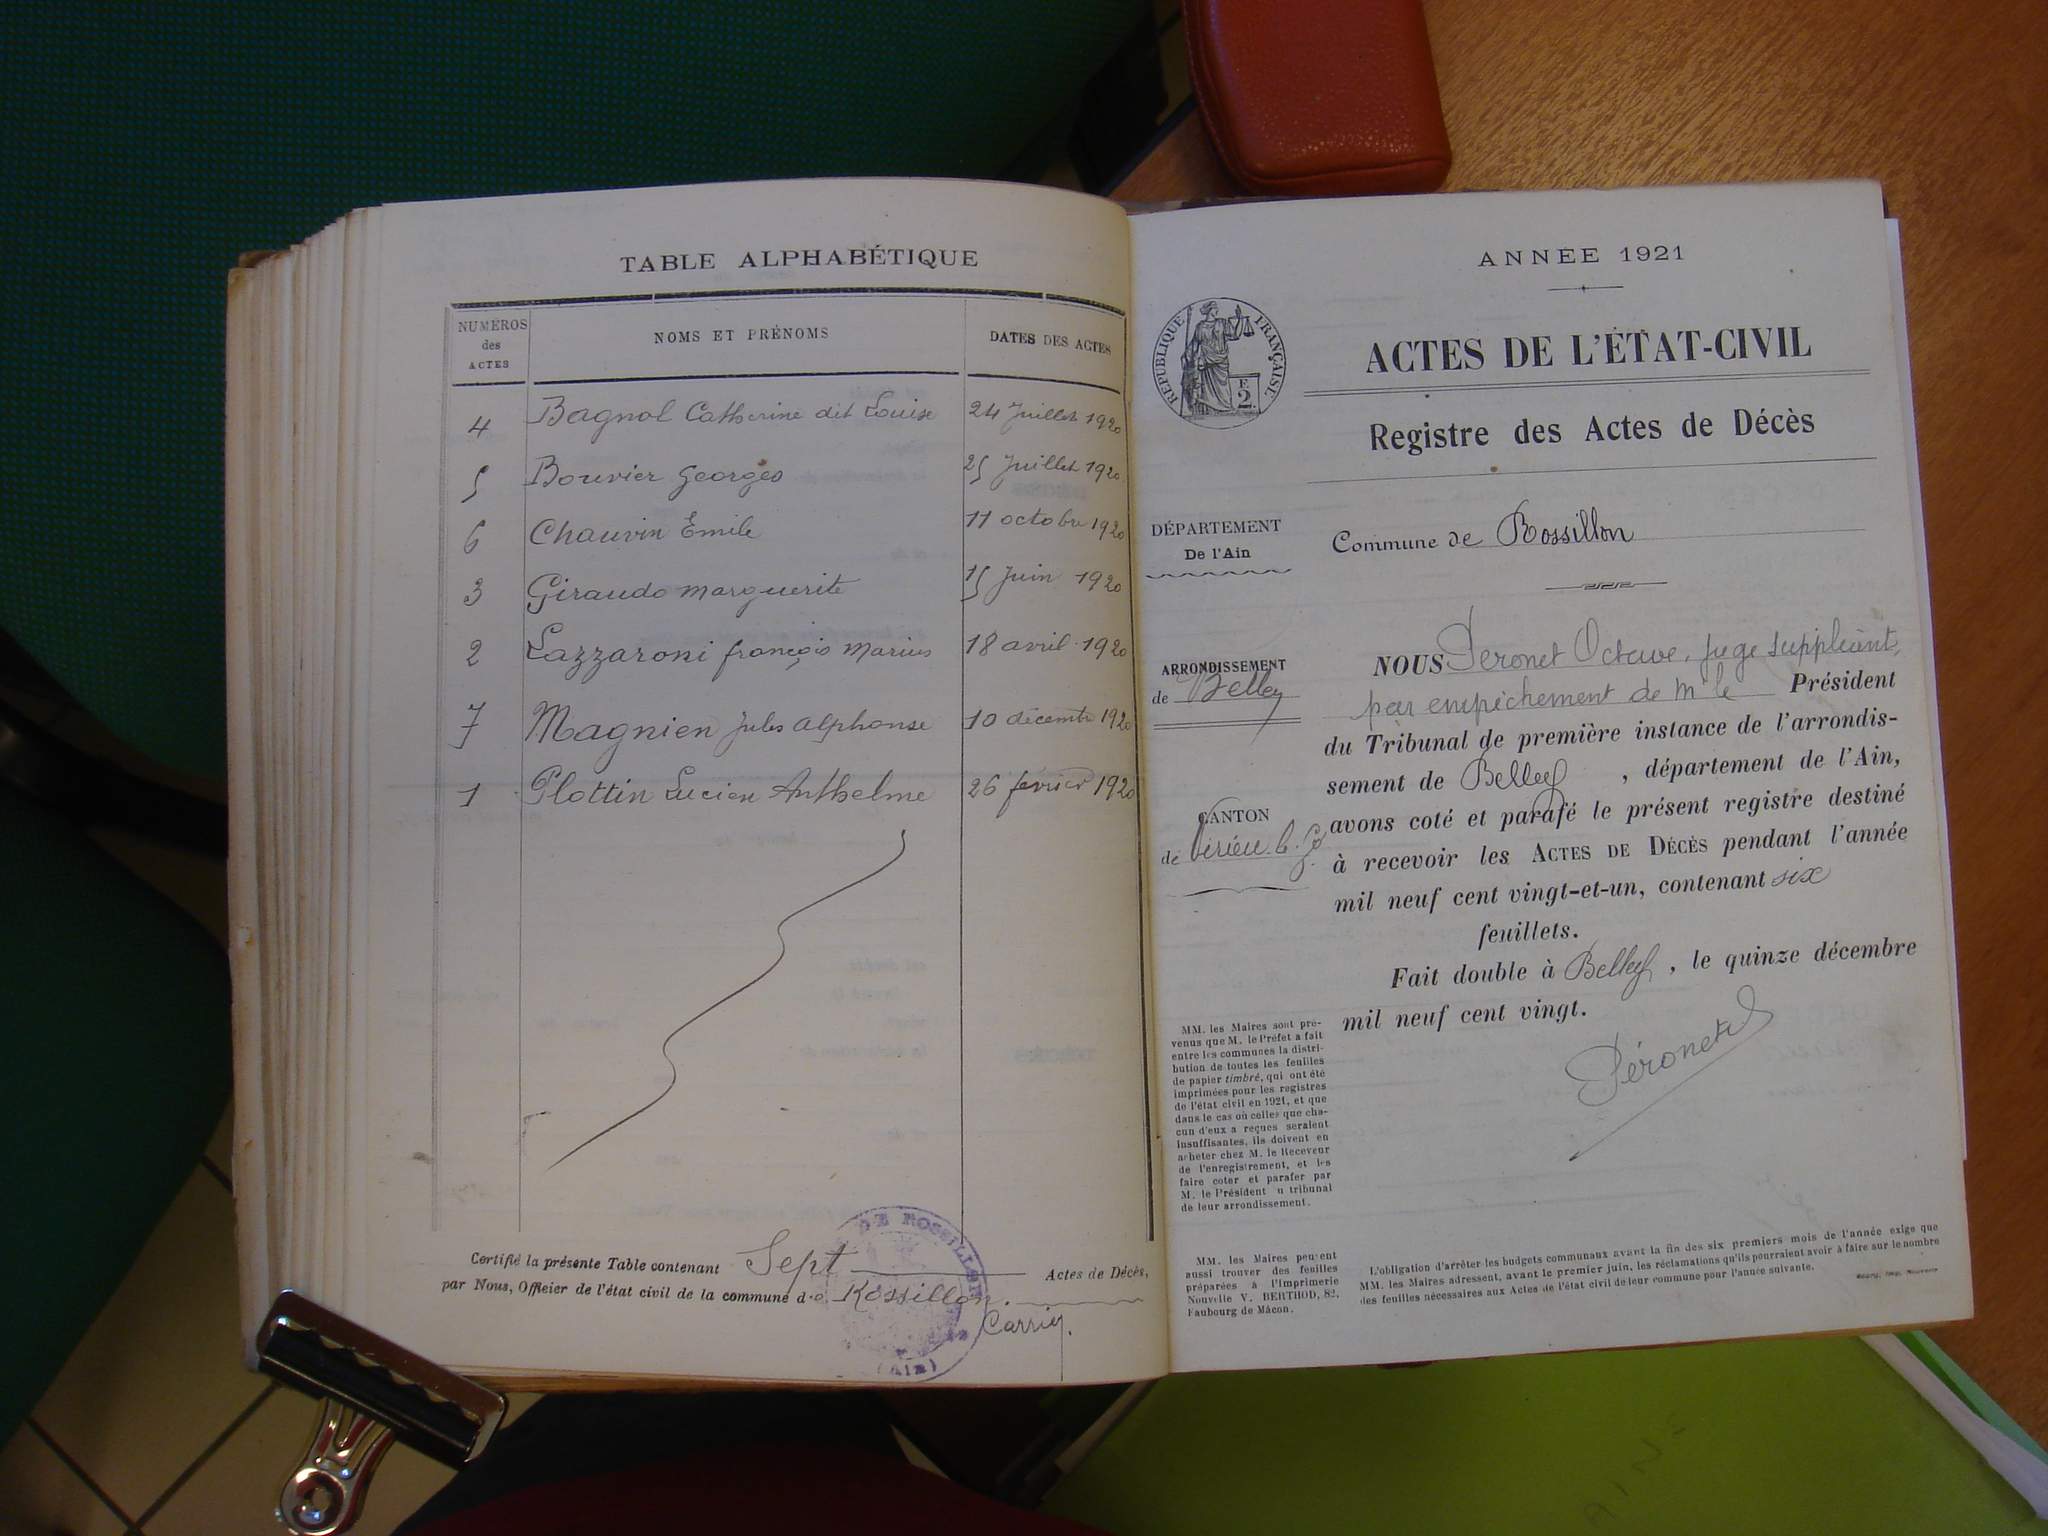 TABLE ALPHABÉTIQUE
NUMÉROS
des
ACTES
NOMS ET PRÉNOMS
DATES DES ACTES
4 Bagnol Catherine dit Louise 24 Juillet 1920
5 Bouvier Georges 25 Juillet 1920
6 Chauvin Emile 11 octobre 1920
3 Giraudo Marguerite 15 Juin 1920
2 Lazzaroni françois Marius 18 avril 1920
7 Magnien Jules Alphonse 10 décembre 1920
1 Plottin Lucien Anthelme 26 février 1920
Certifié la présente Table contenant Sept Actes de Décès,
par Nous, Officier de l'état civil de la commune de Rossillon.
Carrier
DE ROSSILLON
(Ain)
ANNÉE 1921
RÉPUBLIQUE FRANÇAISE
E.
2
ACTES DE L'ÉTAT-CIVIL
Registre des Actes de Décès
DÉPARTEMENT
De l'Ain
Commune de Rossillon
ARRONDISSEMENT
de Belley
CANTON
de Virieu-l-G
NOUS Peronet Octave, juge suppléant,
par empêchement de Mr le Président
du Tribunal de première instance de l'arrondis-
sement de Belley, département de l'Ain,
avons coté et parafé le présent registre destiné
à recevoir les ACTES DE DÉCÈS pendant l'année
mil neuf cent vingt-et-un, contenant six
feuillets.
Fait double à Belley, le quinze décembre
mil neuf cent vingt.
Péronet
MM. les Maires sont pré-
venus que M. le Préfet a fait
entre les communes la distri-
bution de toutes les feuilles
de papier timbré, qui ont été
imprimées pour les registres
de l'état civil en 1921, et que
dans le cas où celles que cha-
cun d'eux a reçues seraient
insuffisantes, ils doivent en
acheter chez M. le Receveur
de l'enregistrement, et les
faire coter et parafer par
M. le Président u tribunal
de leur arrondissement.
MM. les Maires peuvent
aussi trouver des feuilles
préparées à l'Imprimerie
Nouvelle V. BERTHOD, 82,
Faubourg de Mâcon.
L'obligation d'arrêter les budgets communaux avant la fin des six premiers mois de l'année exige que
MM. les Maires adressent, avant le premier juin, les réclamations qu'ils pourraient avoir à faire sur le nombre
des feuilles nécessaires aux Actes de l'état civil de leur commune pour l'année suivante.
Bourg, Imp. Nouvelle